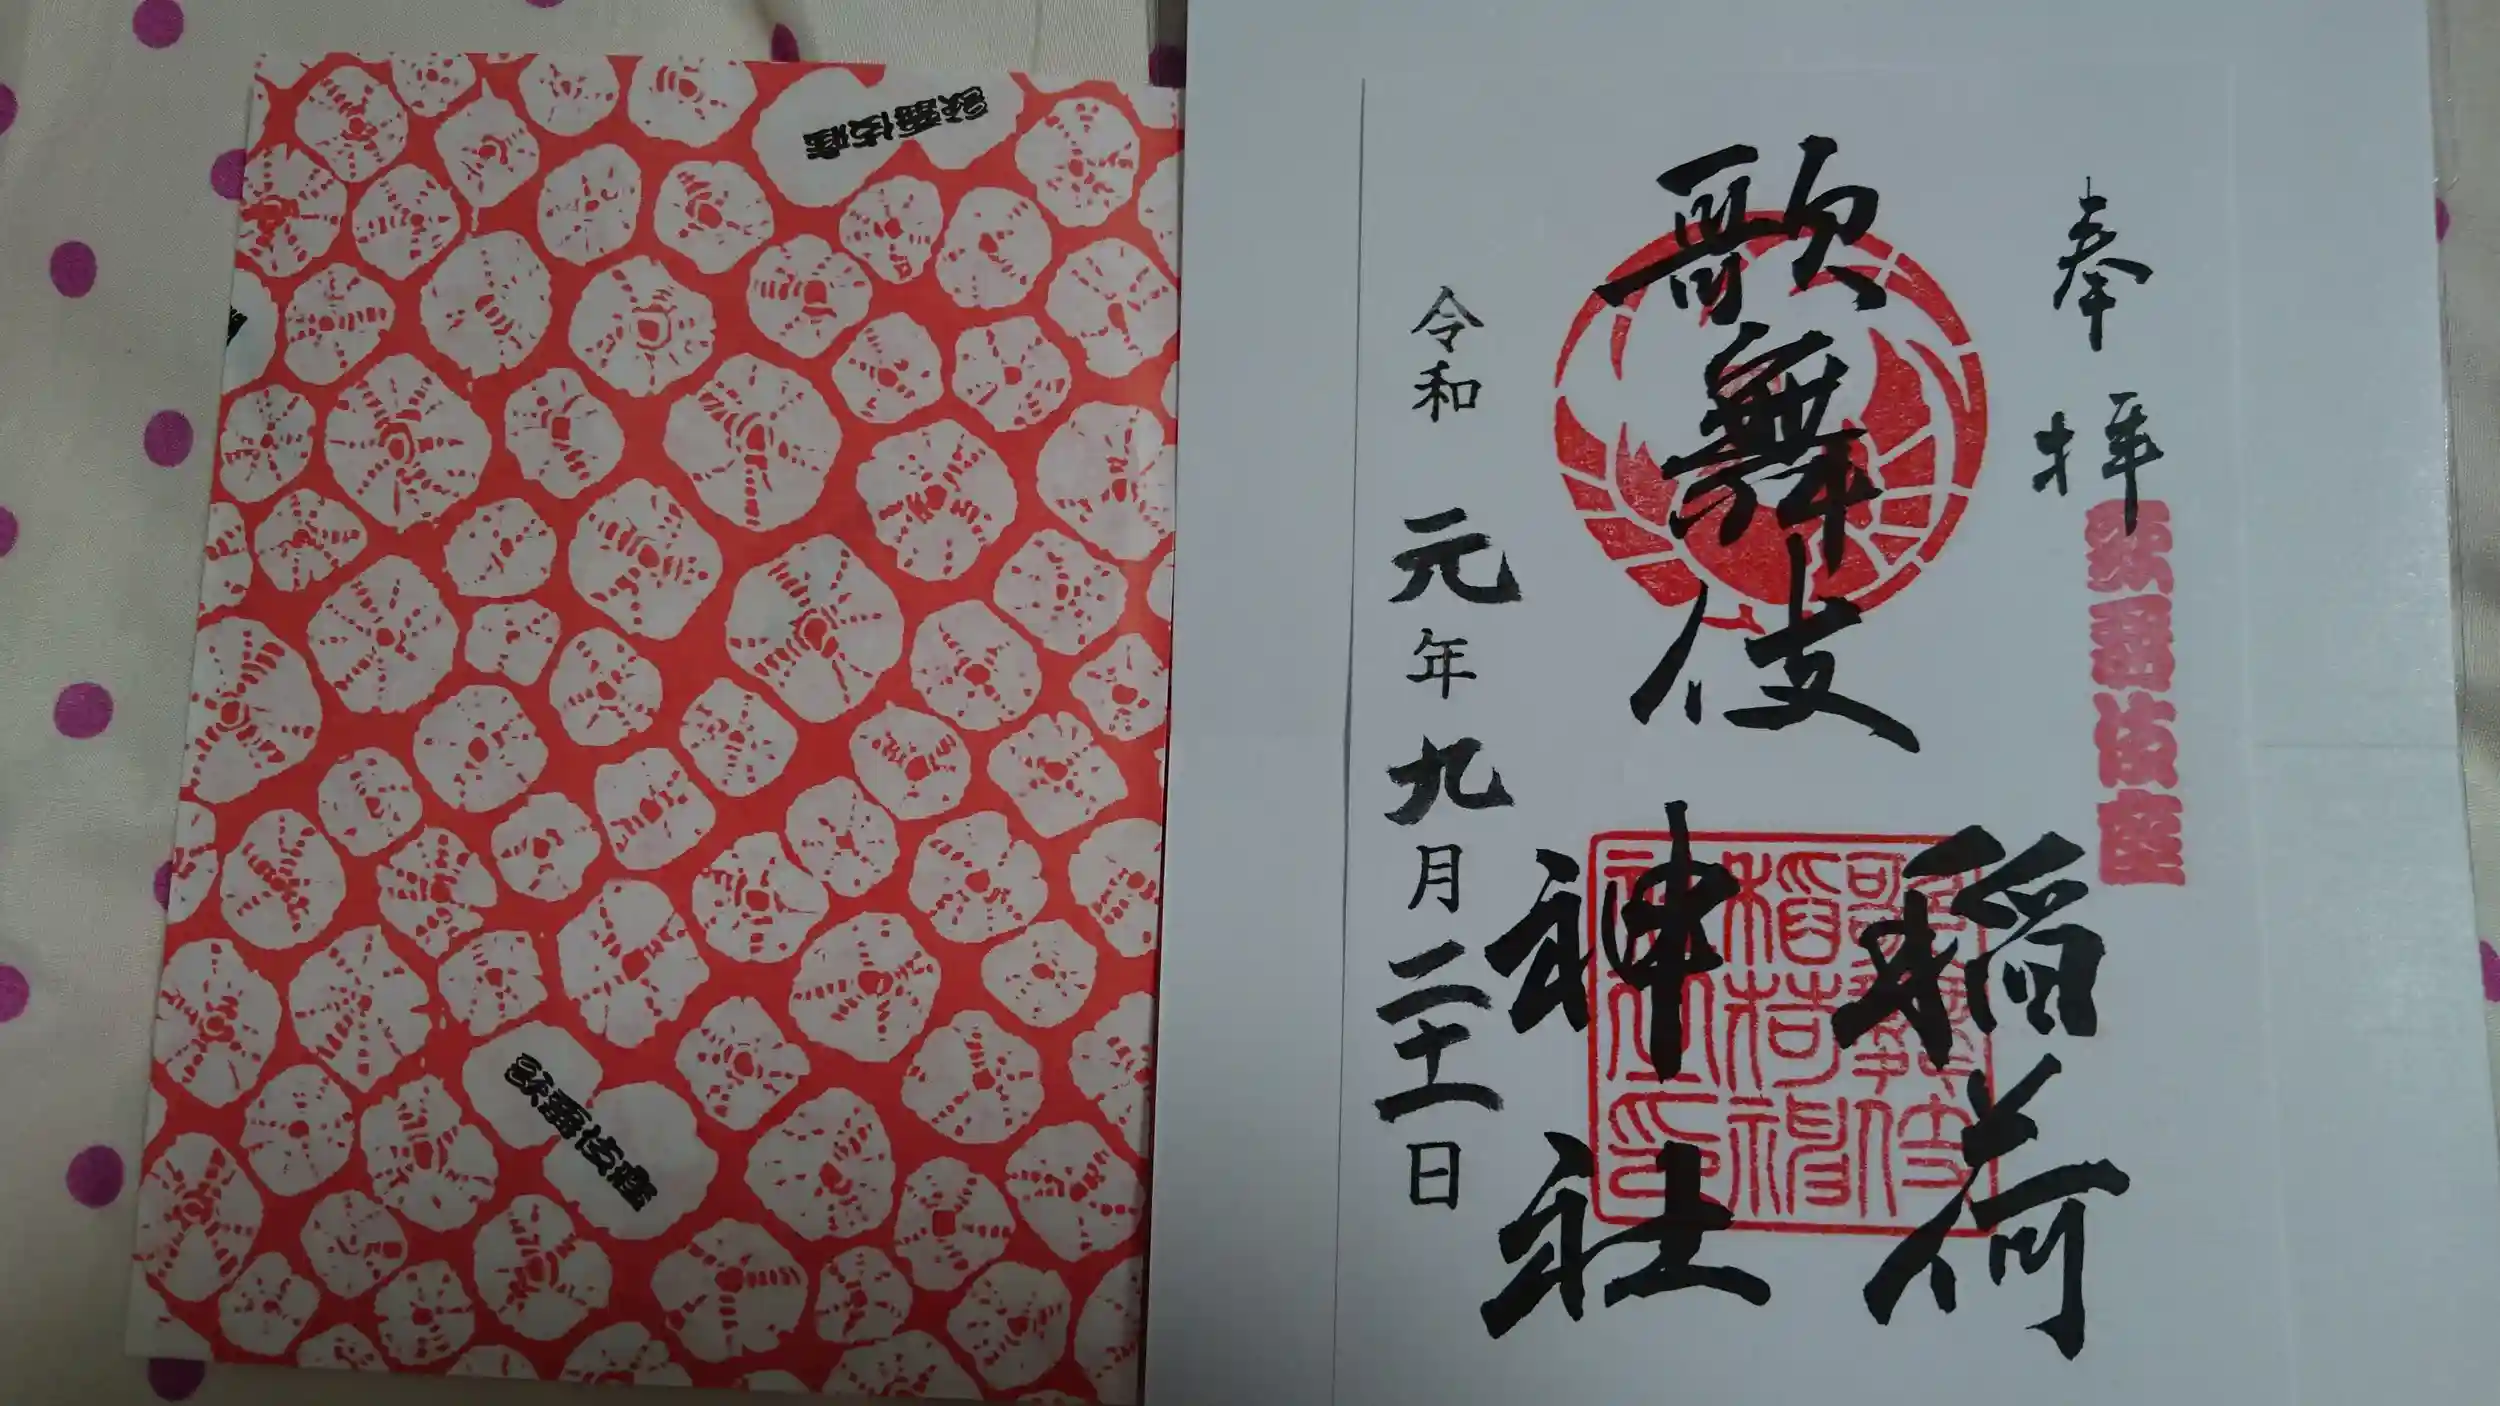 歌舞伎座
歌舞伎座
奉拝
歌舞伎座
歌舞伎
稲荷
神社
歌舞伎
稲荷神
社之印
令和元年九月二十一日